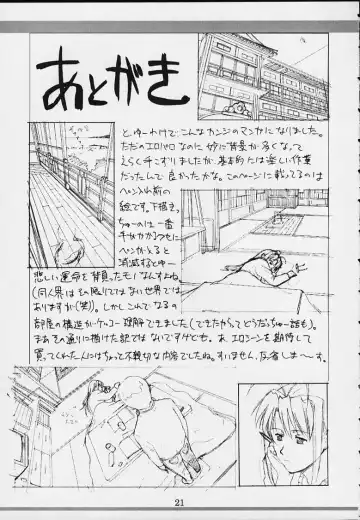 あとがき
と、ゆーわけで こんなカンジのマンガになりました。
ただのエロパロ なのに 妙に背景が多くなって
えらく手こずりましたが 基本的には楽しい作業
だったんで 良かったかな。このページに載ってるのは
ペン入れ前の
絵です。下描き
ちゅーのは一番
手がかかるくせに
ペンが入ると
消滅するとゆー
悲しい運命を背負ったモノなんすよね
(同人界は その限りではない世界では
ありますが(笑))。しかし これで なるの
部屋の構造がケッコー理解できました(できたからってどうだっちゅー話も)。
まあ その通りに描けた訳ではないですけども。あ、エロシーンを期待して
買ってくれた人にはちょっと不親切な内容でしたね。すいません、反省しま〜す。
21